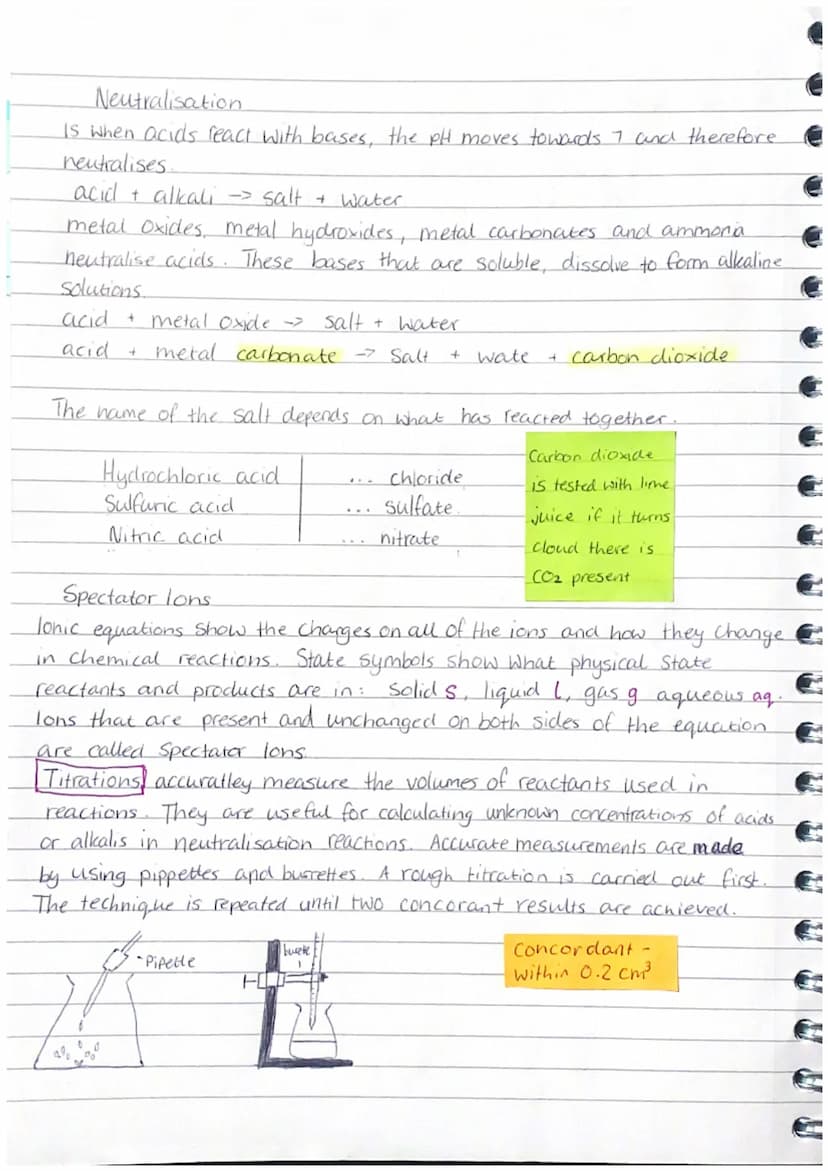 Neutralisation
Is when acids react with bases, the pH moves towards 7 and therefore
neutralises.
acid + alkali -> salt + water
metal oxides, metal hydroxides, metal carbonates and ammonia
neutralise acids. These bases that are soluble, dissolve to form alkaline
solutions.
acid + metal oxide -> salt + water
acid + metal carbonate -> salt + wate + carbon dioxide
The name of the salt depends on what has reacted together.
Hydrochloric acid ... chloride
Sulfuric acid ... sulfate
Nitric acid ... nitrate
Carbon dioxide
is tested with lime
juice if it turns
cloud there is
CO2 present
Spectator Ions
Ionic equations show the charges on all of the ions and how they change
in chemical reactions. State symbols show what physical state
reactants and products are in: solid s, liquid l, gas g aqueous aq.
Ions that are present and unchanged on both sides of the equation
are called Spectator Ions.
Titrations accuratley measure the volumes of reactants used in
reactions. They are useful for calculating unknown concentrations of acids
or alkalis in neutralisation reactions. Accurate measurements are made
by using pippettes and burrettes. A rough titration is carried out first.
The technique is repeated until two concorant results are achieved.
- Pipette
Concordant -
within 0.2 cm³